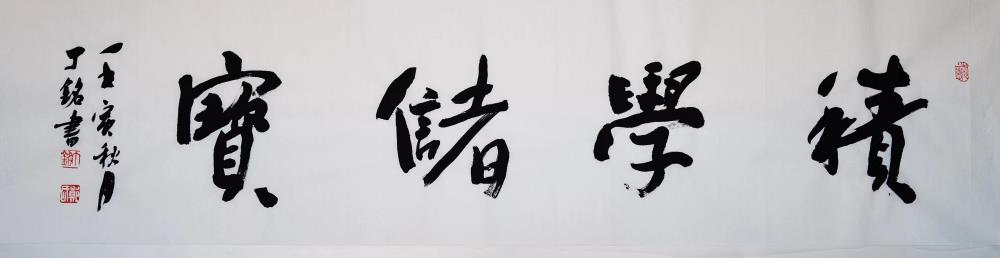 積學儲寶
壬寅秋月
丁銘書